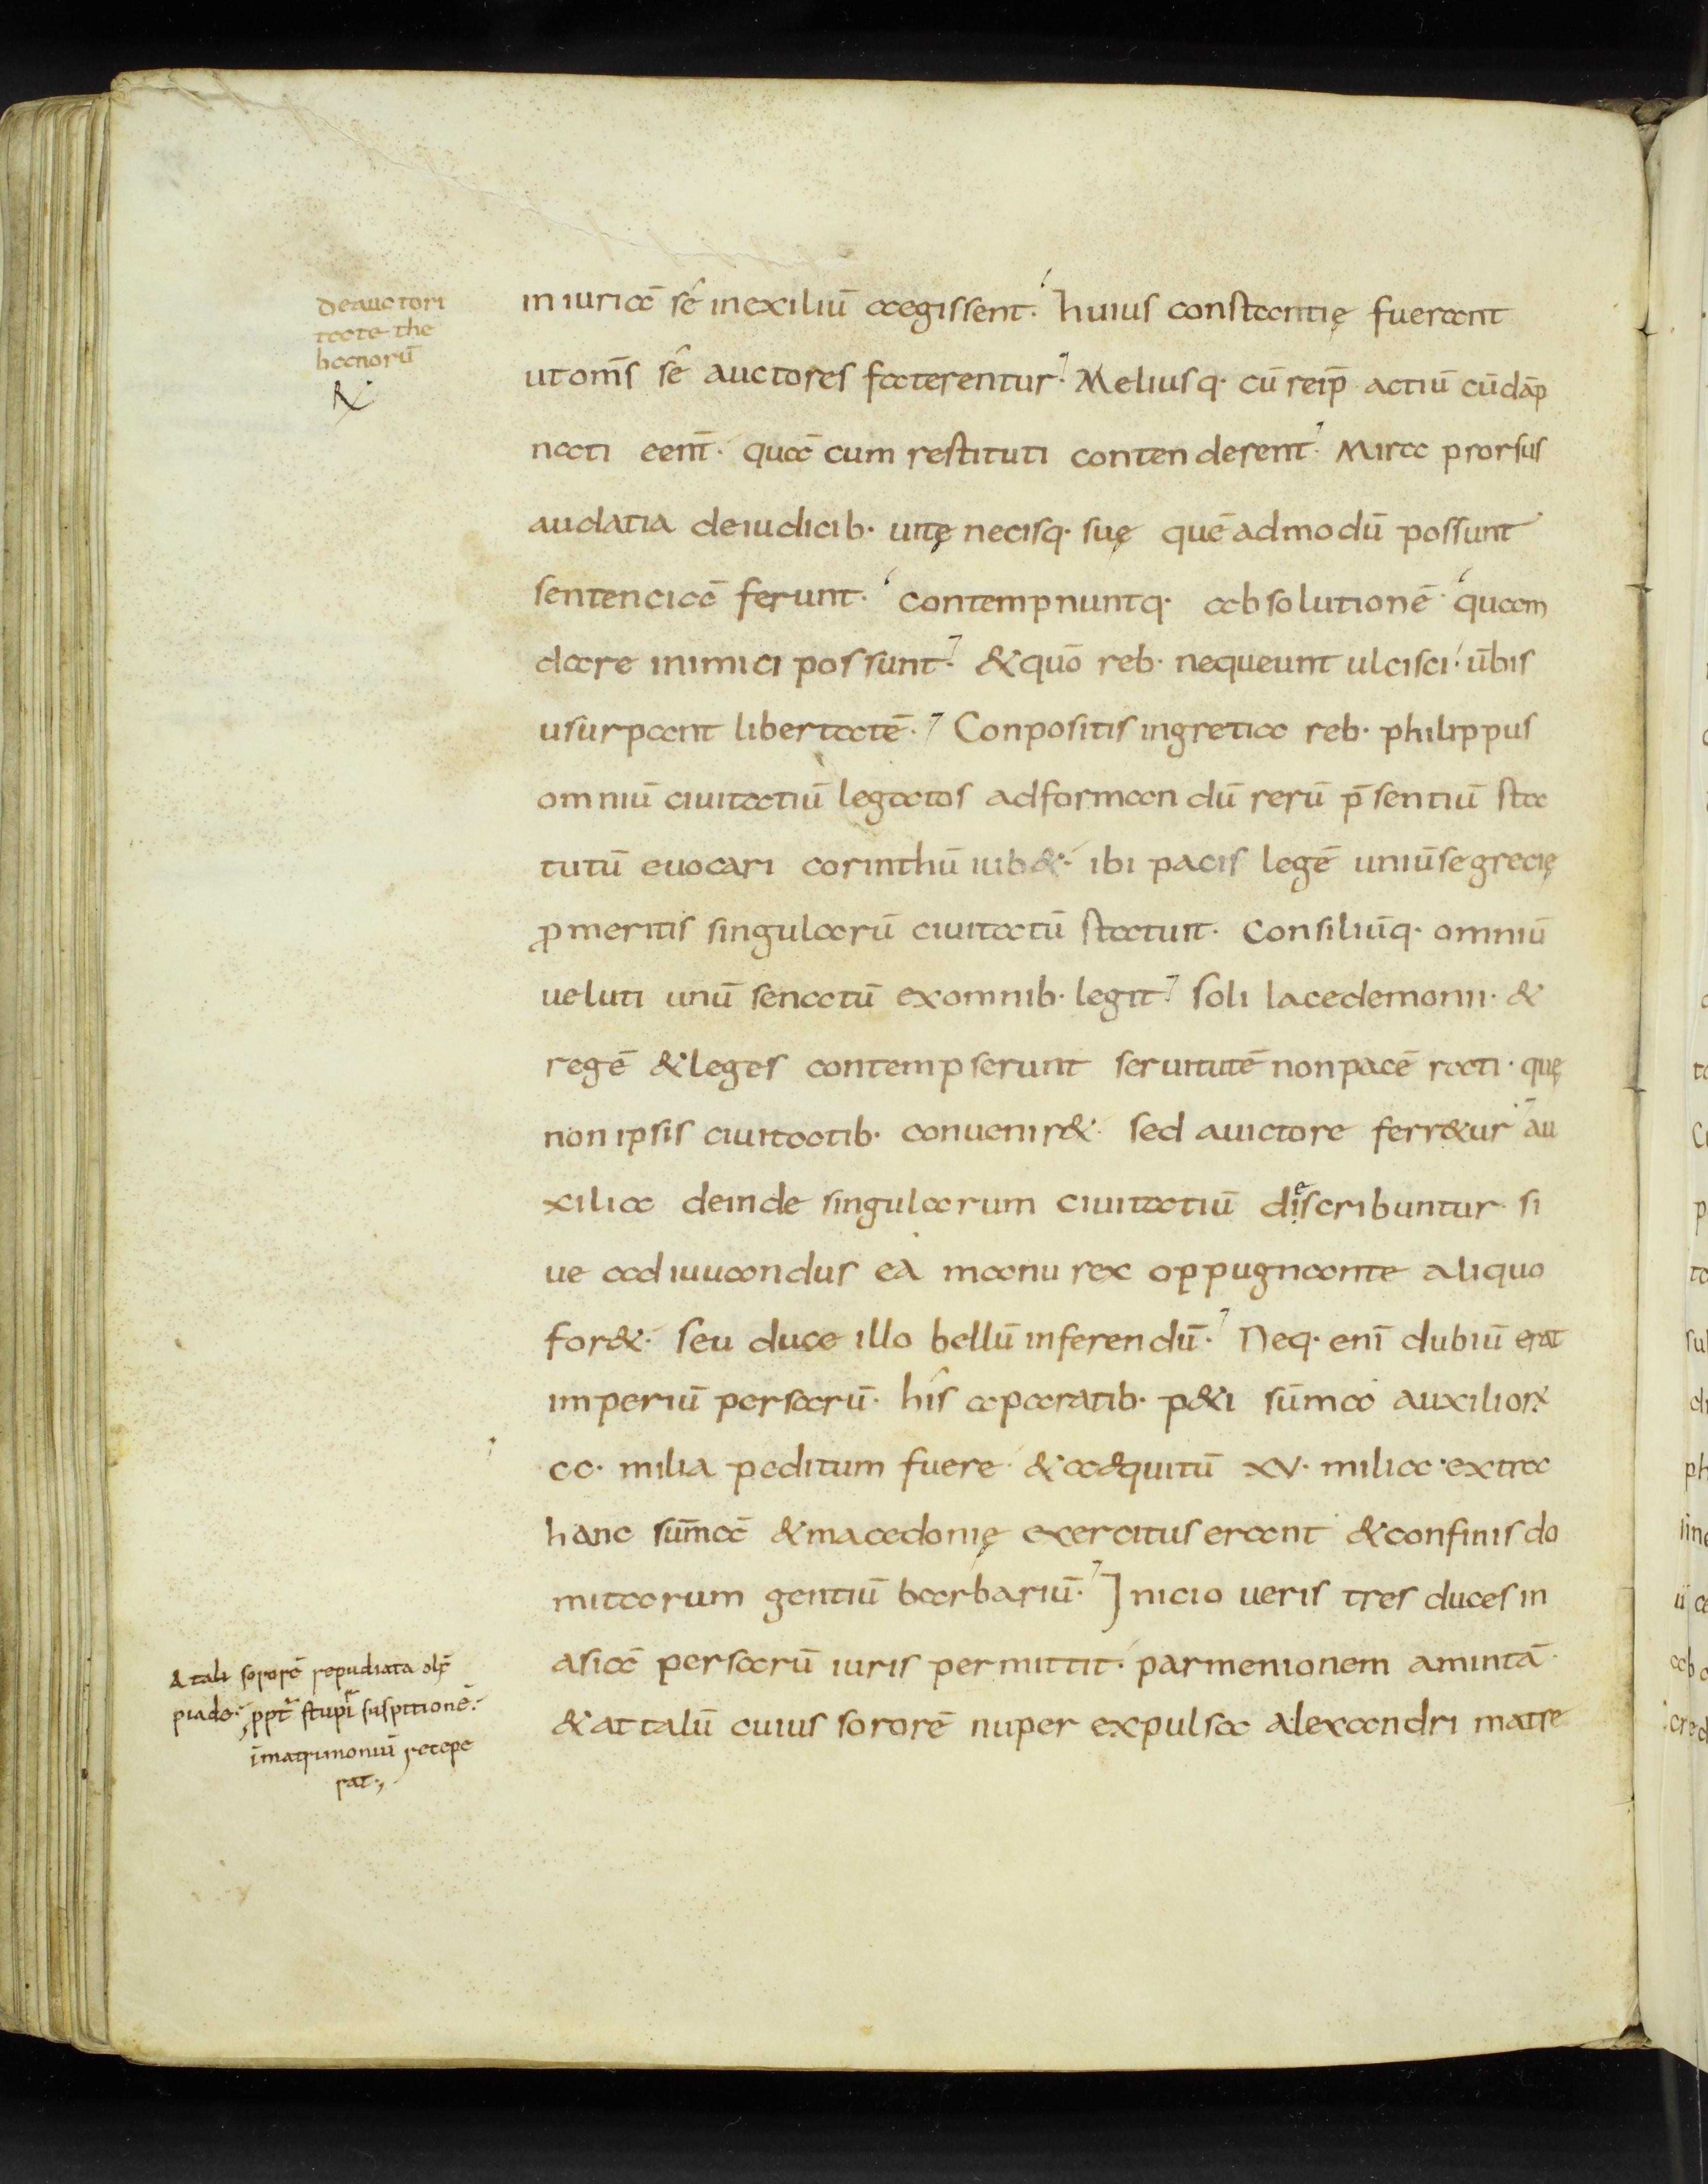 deauctori
tate the
banorū
iniuriā sē inexiliū aegissent. huius constantię fuerant
utom̄s sē auctores faterentur. Meliusq· cū reip̄ actiū cūdāp
nati eent̄. quā cum restituti contenderent. Mira prorsus
audatia deiudicib· uitę necisq· suę quēadmodū possunt
sentenciā ferunt. contempnuntq· absolutionē quam
dare inimici possunt. & quō reb· nequeunt ulcisci. ūbis
usurpant libertatē. Conpositis ingretia reb· philippus
omniū ciuitatiū legatos adformandū rerū p̄sentiū sta
tutū euocari corinthū iub&. ibi pacis legē uniūse grecię
ꝓmeritis singularū ciuitatū statuit. Consiliūq· omniū
ueluti unū senatū exomnib· legit. soli lacedemonii· &
regē & leges contempserunt seruitutē nonpacē rati· quę
non ipsis ciuitatib· conuenir& sed auictore ferr&ur au
xilia deinde singularum ciuitatiū discribuntur si
ue adiuuandus ea manu rex oppugnante aliquo
for&. seu duce illo bellū inferendū. Neq· enī dubiū erat
imperiū persarū. hīs aparatib· p&i sūma auxilioꝝ
cc· milia peditum fuere & a&quitū xv· milia· extra
hanc sūmā & macedonię exercitus erant & confinis do
mitarum gentiū barbariū. Inicio ueris tres duces in
asiā persarū iuris permittit. parmenionem amintā
& attalū cuius sororē nuper expulsa alexandri matre
Atali sororē repudiata olī
piade. ppt̄ stupi suspitionē.
īmatrimoniū recepe
rat.